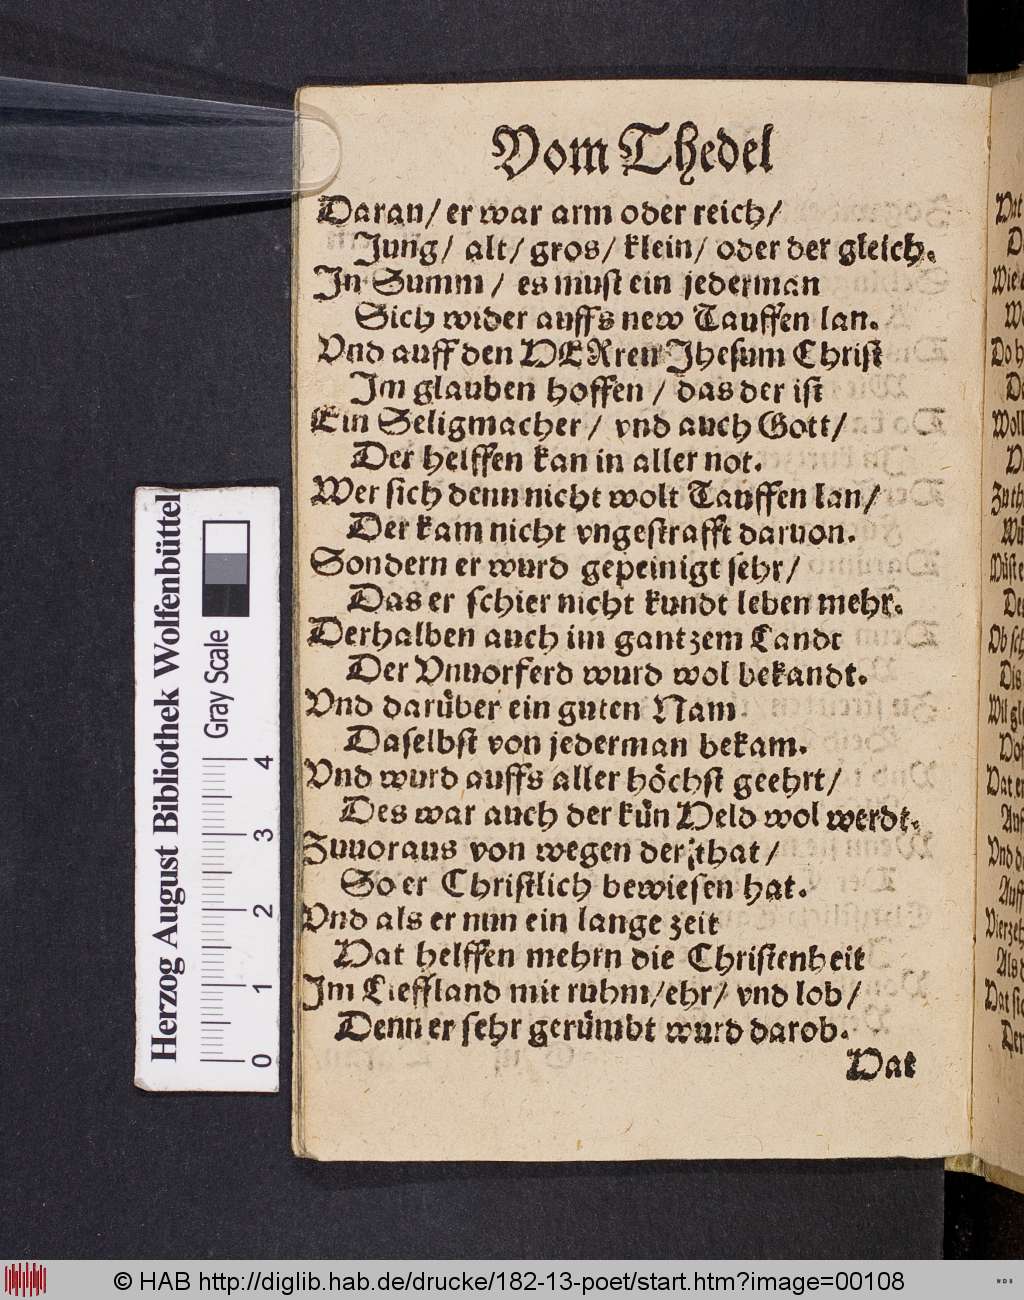 Vom Thedel
Daran/ er war arm oder reich/
Jung/ alt/ gros/ klein/ oder der gleich.
In Summ / es must ein jederman
Sich wider auffs new Tauffen lan.
Vnd auff den HERren Jhesum Christ
Im glauben hoffen / das der ist
Ein Seligmacher / vnd auch Gott/
Der helffen kan in aller not.
Wer sich denn nicht wolt Tauffen lan/
Der kam nicht vngestrafft daruon.
Sondern er wurd gepeinigt sehr/
Das er schier nicht kundt leben mehr.
Derhalben auch im gantzem Landt
Der Vnuorferd wurd wol bekandt.
Vnd darüber ein guten Nam
Daselbst von jederman bekam.
Vnd wurd auffs aller höchst geehrt/
Des war auch der kün Held wol werdt.
Zuuoraus von wegen der that/
So er Christlich bewiesen hat.
Vnd als er nun ein lange zeit
Hat helffen mehrn die Christenheit
Im Lieffland mit ruhm/ehr/ vnd lob/
Denn er sehr gerümbt wurd darob.
Hat
Herzog August Bibliothek Wolfenbüttel
Gray Scale
0 1 2 3 4
Hat
Wil gl
Hat er
Vnd d
Auff
Vierzeh
Als d
Hat sie
Der
© HAB http://diglib.hab.de/drucke/182-13-poet/start.htm?image=00108